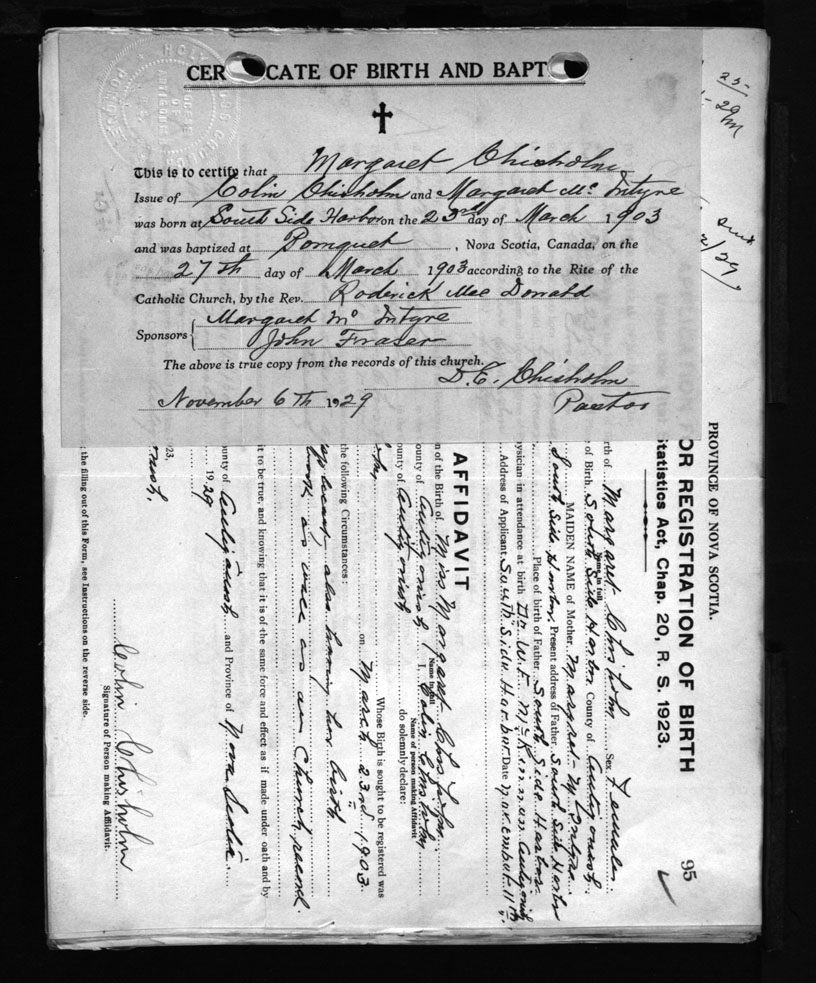 CER CATE OF BIRTH AND BAPT
This is to certify that Margaret Chisholm
Issue of Colin Chisholm and Margaret Mc Intyre
was born at South Side Harbor on the 23rd day of March 1903
and was baptized at Pomquet, Nova Scotia, Canada, on the
27th day of March 1903 according to the Rite of the
Catholic Church, by the Rev. Roderick Mac Donald
Sponsors { Margaret Mc Intyre
John Fraser
The above is true copy from the records of this church.
D. C. Chisholm
November 6th 1929 Pastor
PROVINCE OF NOVA SCOTIA.
OR REGISTRATION OF BIRTH
Statistics Act, Chap. 20, R. S. 1923.
95
rth of Margaret Chisholm Sex Female
Name in full
of Birth, South Side Harbor County of Antigonish
MAIDEN NAME of Mother Margaret McIntyre
South Side Harbor, Present address of Father South Side Harbor
Place of birth of Father South Side Harbor
ysician in attendance at birth Dr. W. F. McKinnon Antigonish
Address of Applicant South Side Harbour Date November 11th
AFFIDAVIT
n of the Birth of Miss Margaret Chisholm
Name in full
ounty of Antigonish I, Colin Chisholm
Name of person making Affidavit
ounty of Antigonish do solemnly declare:
Whose Birth is sought to be registered was
on March 23rd 1903
the following Circumstances:
also having her birth
as well as on Church record.
it to be true, and knowing that it is of the same force and effect as if made under oath and by
ounty of Antigonish and Province of Nova Scotia.
1929
Colin Chisholm
Signature of Person making Affidavit.
the filling out of this Form, see Instructions on the reverse side.